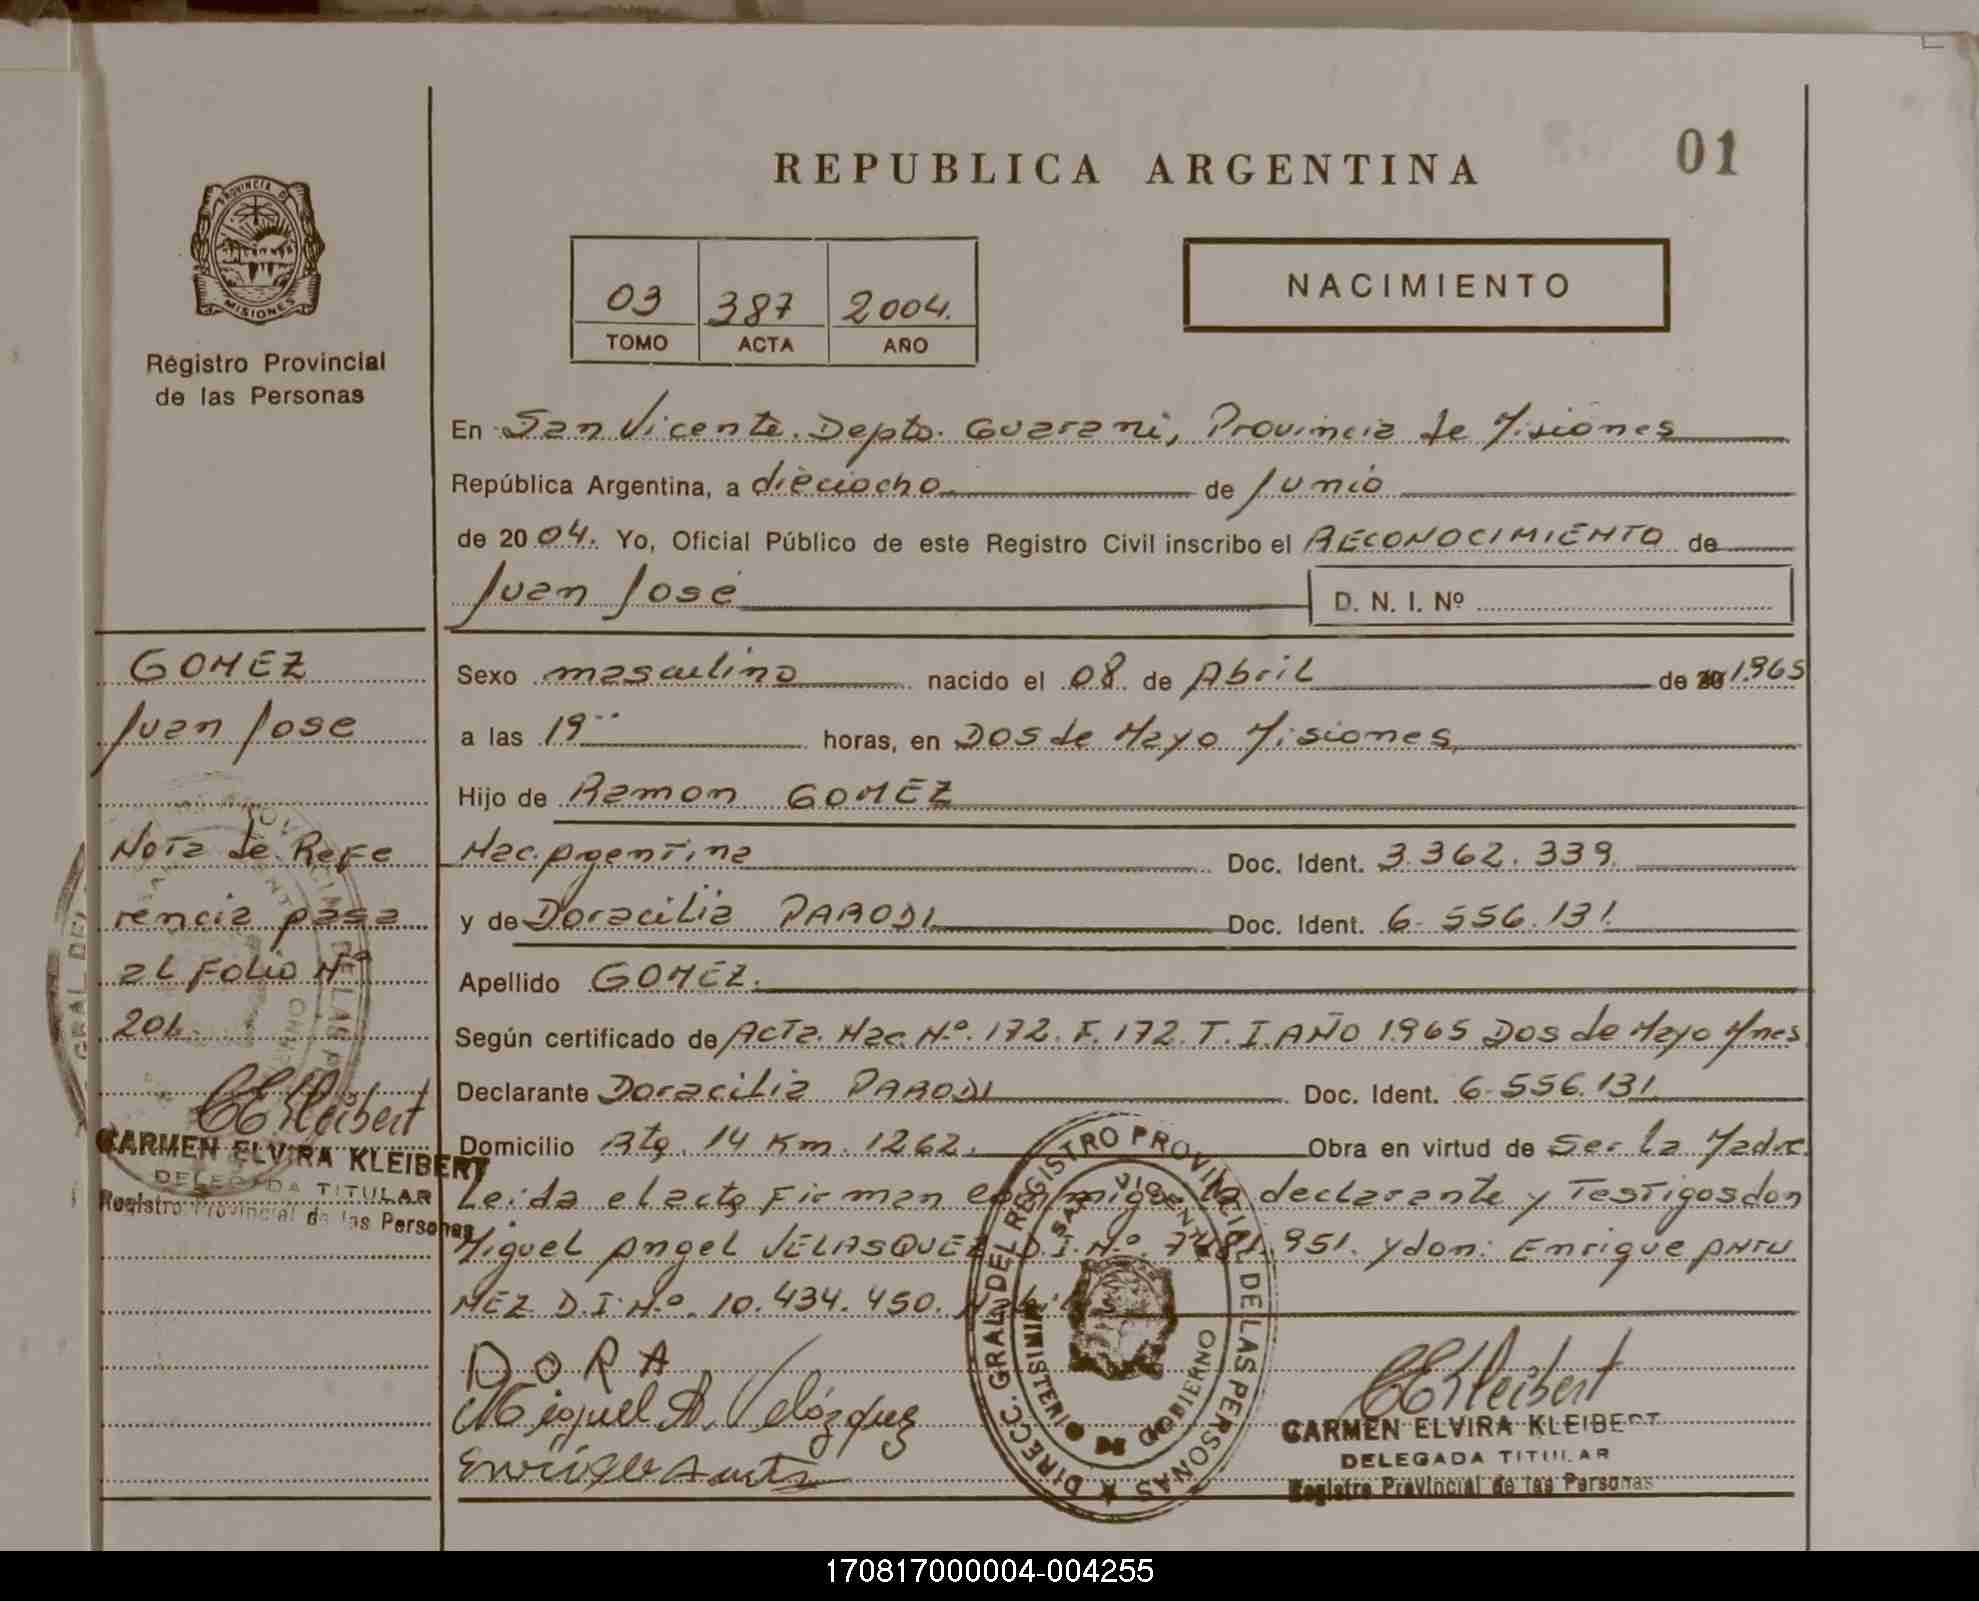 01
REPUBLICA ARGENTINA
NACIMIENTO
03 387 2004.
TOMO ACTA AÑO
PROVINCIA DE
MISIONES
Registro Provincial
de las Personas
En San Vicente. Depto. Guarani, Provincia de Misiones
República Argentina, a dieciocho de Junio
de 2004. Yo, Oficial Público de este Registro Civil inscribo el RECONOCIMIENTO de
Juan José D. N. I. Nº
GOMEZ
Juan Jose
Nota de Refe
rencia pasa
al Folio Nº
201.
CEKleibert
CARMEN ELVIRA KLEIBERT
DELEGADA TITULAR
Registro Provincial de las Personas
Sexo masculino nacido el 08 de Abril de 20 1.965
a las 19 horas, en Dos de Mayo Misiones
Hijo de Ramon GOMEZ
Nac. Argentina Doc. Ident. 3.362.339
y de Doracilia PARODI Doc. Ident. 6.556.131
Apellido GOMEZ.
Según certificado de Acta. Nac. Nº. 172. F. 172. T. I. AÑO 1965 Dos de Mayo Mnes
Declarante Doracilia PARODI Doc. Ident. 6.556.131
Domicilio Rta. 14 Km. 1262. Obra en virtud de Ser la Madre
Leida el acta Firman conmigo la declarante y Testigos don
Miguel Angel VELASQUEZ D.I.Nº. 951. y don: Enrique ANTU
NEZ D.I.Nº. 10.434.450.
DORA
Miguel A. Velázquez
CEKleibert
CARMEN ELVIRA KLEIBERT
DELEGADA TITULAR
Registro Provincial de las Personas
DIRECC. GRAL. DEL REGISTRO PROVINCIAL DE LAS PERSONAS
SAN VICENTE
MINISTERIO DE GOBIERNO
170817000004-004255